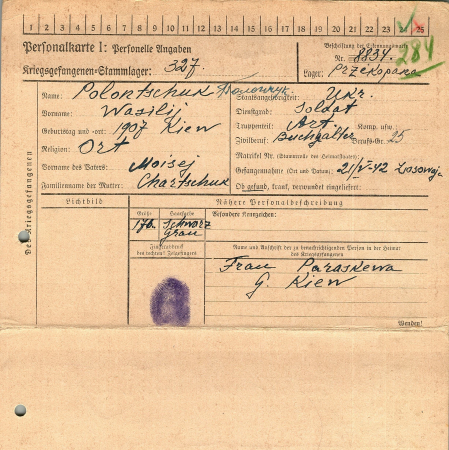 1 2 3 4 5 6 7 8 9 10 11 12 13 14 15 16 17 18 19 20 21 22 23 24 25
Personalkarte I: Personelle Angaben
Beschriftung der Erkennungsmarke
Nr. 8834
284
Kriegsgefangenen-Stammlager: 327.
Lager: Przekopana
Des Kriegsgefangenen
Name: Polontschuk Полончук
Vorname: Wasilij
Geburtstag und -ort: 1907 Kiew
Religion: Ort
Vorname des Vaters: Moisej
Familienname der Mutter: Chartschuk
Staatsangehörigkeit: Ukr.
Dienstgrad: Soldat
Truppenteil: Art. Komp. usw.:
Zivilberuf: Buchhalter Berufs-Gr. 25
Matrikel Nr. (Stammrolle des Heimatstaates):
Gefangennahme (Ort und Datum): 21/V-42 Losowaja
Ob gesund, krank, verwundet eingeliefert:
Lichtbild
Nähere Personalbeschreibung
Größe
Haarfarbe
Besondere Kennzeichen:
176
Schwarz
Grau
Fingerabdruck
des rechten Zeigefingers
Name und Anschrift der zu benachrichtigenden Person in der Heimat
des Kriegsgefangenen
Frau Paraskewa
G. Kiew
Wenden!